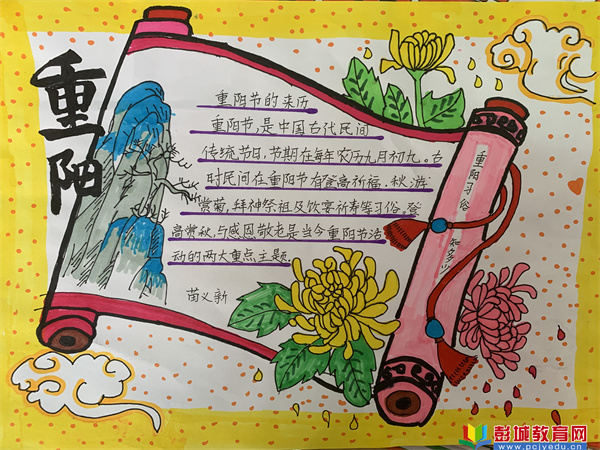 重阳
重阳节的来历
重阳节,是中国古代民间
传统节日,节期在每年农历九月初九。古
时民间在重阳节有登高祈福、秋游
赏菊,拜神祭祖及饮宴祈寿等习俗。登
高赏秋,与感恩敬老是当今重阳节活
动的两大重点主题
苗义新
重阳习俗知多少
彭城教育网
www.pcjyedu.cn